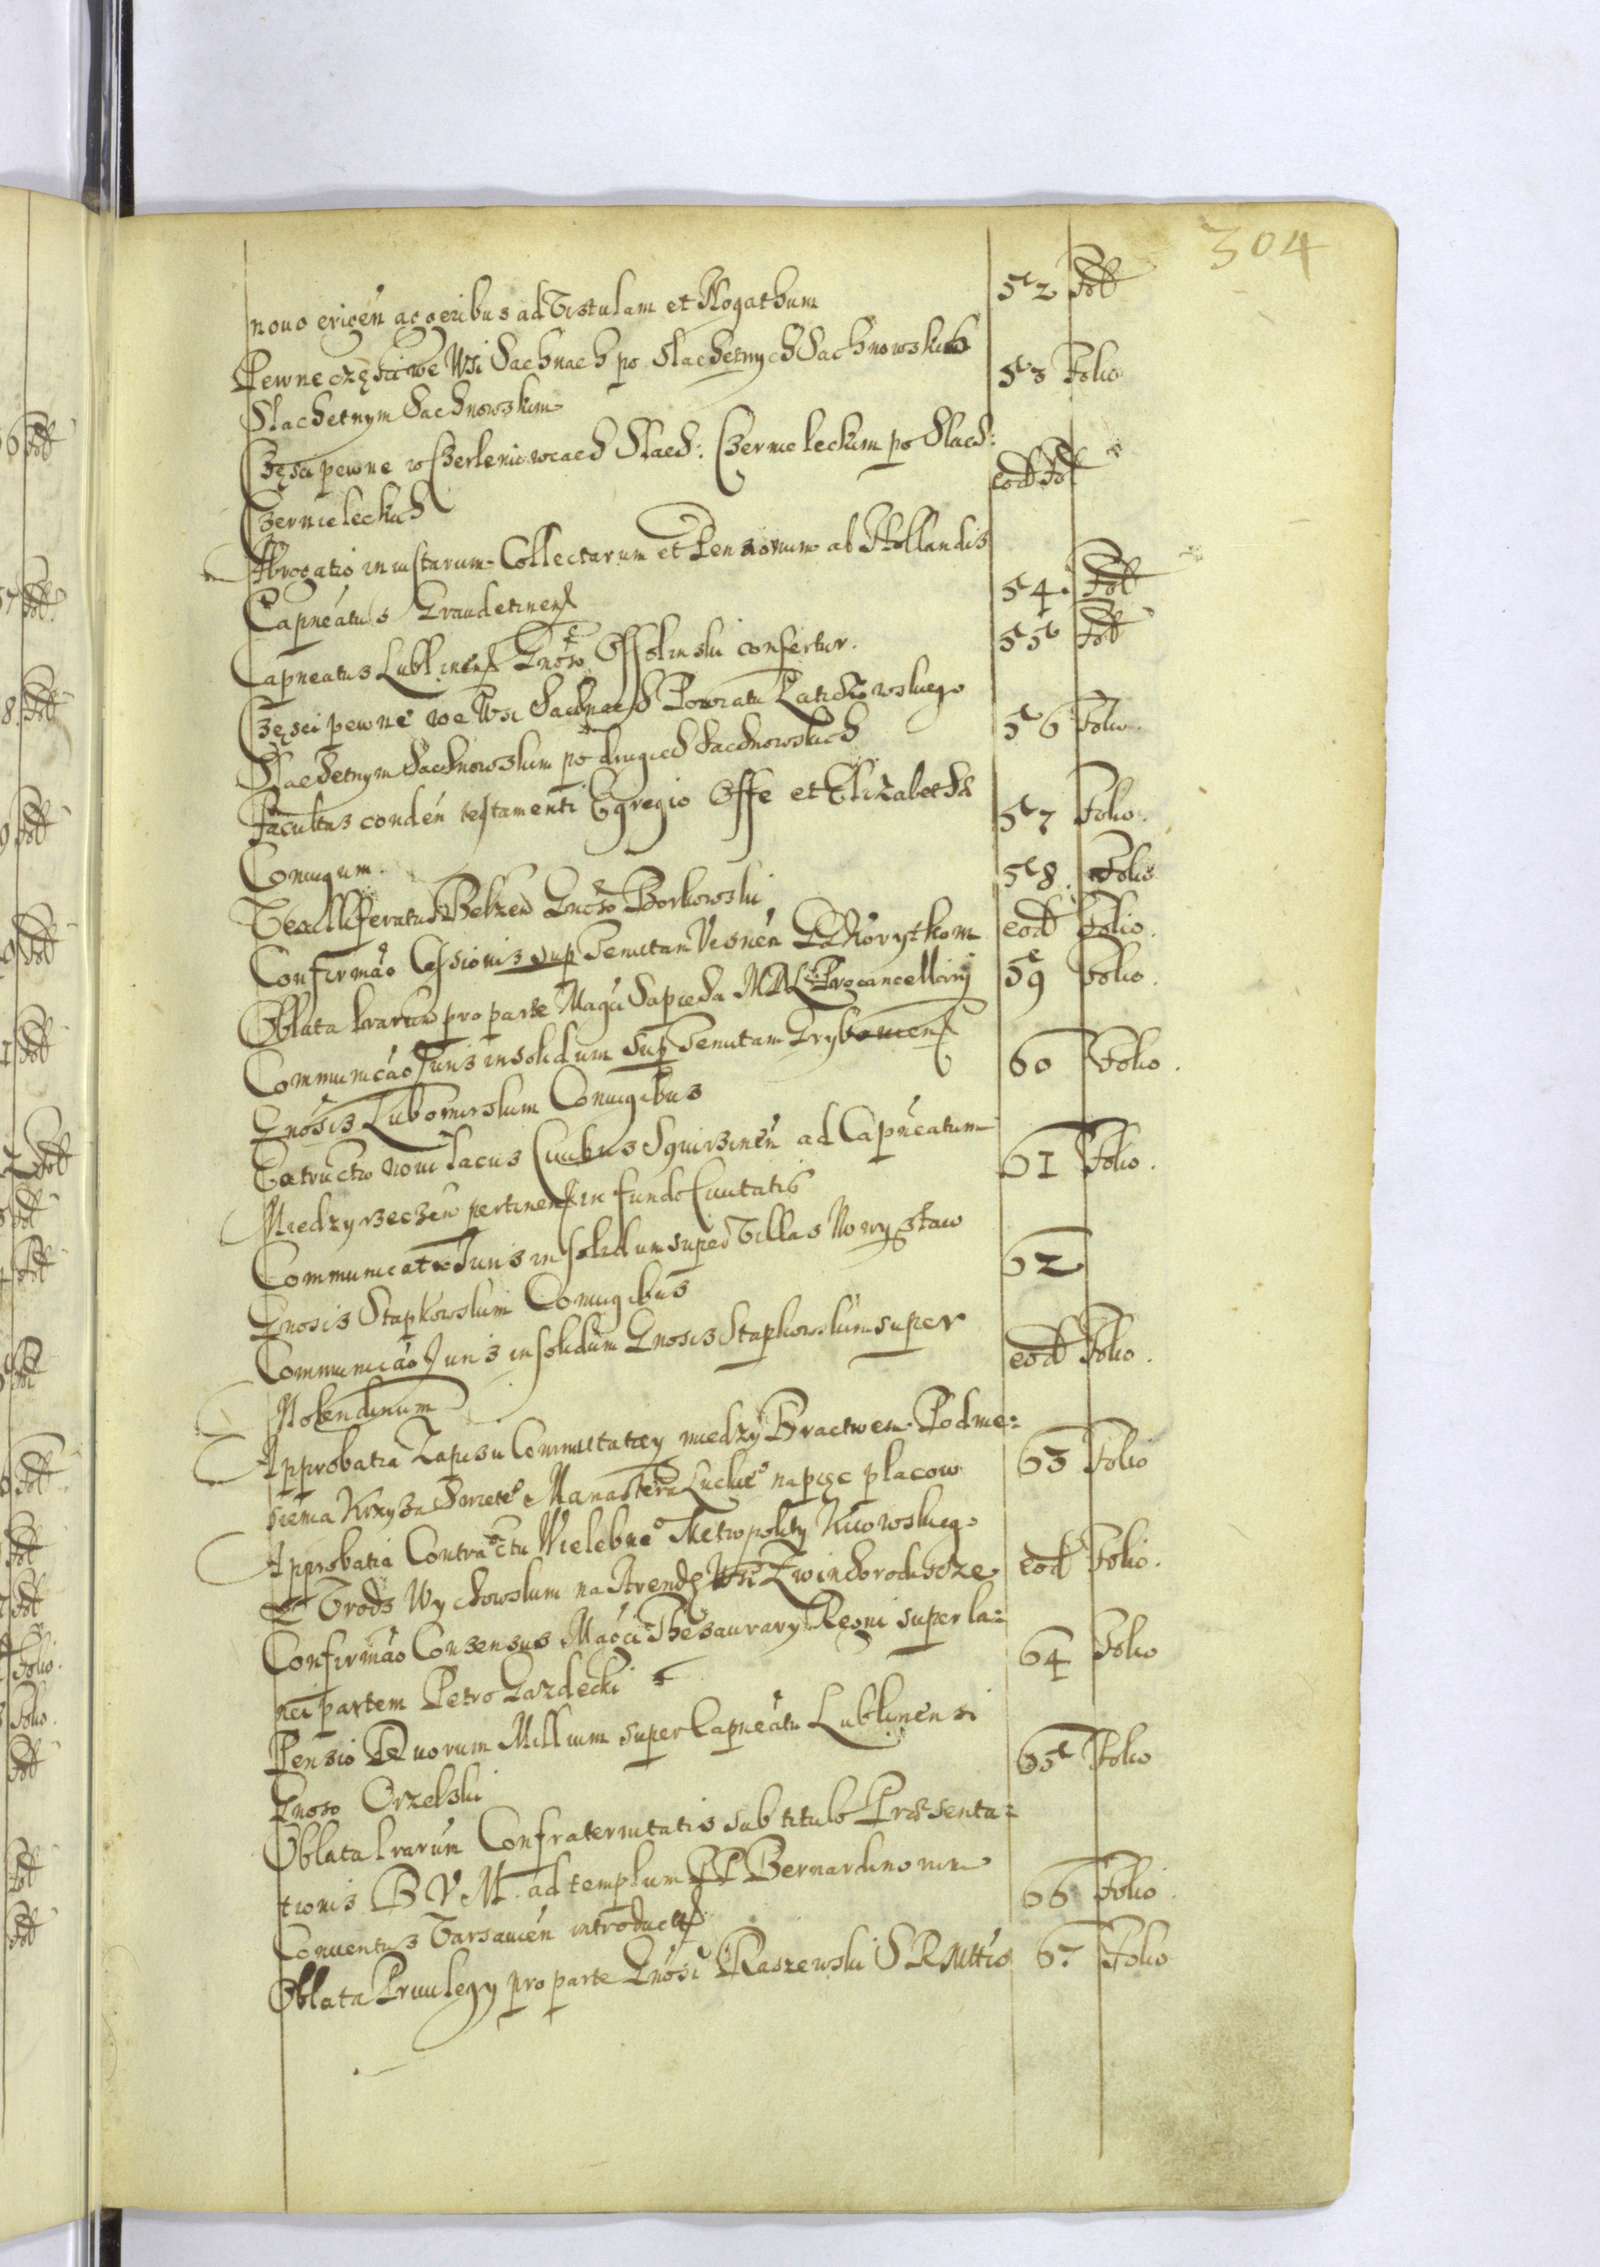 304
novo erigen aggeribus ad Vistulam et Nogathum 52 Fol
Pewne części we Wsi Sachnach po Slachetnych Sachnowskich
Slachetnym Sachnowskim 53 Folio
Części pewne w Czerleniowcach Slach: Czernieleckim po Slach:
Czernieleckich eod Fol
Abrogatio iniustarum Collectarum et Pensionum ab Hollandis
Capneatus Graudetinens 54. Fol
Capneatus Lublinens Gnoso Ossolinski confertur. 55 Fol
Części pewne we Wsi Sachnach Powiatu Latichowskiego
Slachetnym Sachnowskim po drugich Sachnowskich 56 Folio.
Facultas conden testamenti Egregio Offe et Elizabetha
Coniugum. 57 Folio.
Vexilliferatus Belzen Gnoso Borkowski 58. Folio
Confirmao Cessionis sup Tenutam Visnen Korytkom eod Folio.
Oblata lrarum pro parte Magci Sapieha MDL Procancellarij 59 Folio.
Communicao Juris insolidum sup Tenutam Grybowiens
Gnosis Lubomirskim Coniugibus 60 Folio.
Extructio novi lacus Civibus Squirzinen ad Capneatum
Miedzyrzeczen pertinens in fundo Civitatis 61 Folio.
Communicatio Juris insolidum super Villas Nowy staw
Gnosis Stapkowskim Coniugibus 62
Communicao Juris insolidum Gnosis Stapkowskim super
Molendinum eod Folio.
Approbatia Zapisu Commutatiey miedzy Bractwem Podnie=
sienia Krzyza Swiete Manastera Luckie na pięc placow 63 Folio
Approbatia Contractu Wielebne Metropolity Kiiowskiego
Z Vrodz Wychowskim na Arendę Wsi Zwinhorodischcze eod Folio.
Confirmao Consensus Magci Thesaurary Regni super la=
nei partem Petro Gazdecki 64 Folio
Pensio Duorum Millium super Capneatu Lublinensi
Gnoso Orzelski 65 Folio
Oblata lrarum Confraternitatis sub titulo Præsenta=
tionis B V M. ad templum PP Bernardinorum
Conventus Varsavien introductæ 66 Folio.
Oblata Privilegy pro parte Gnosi Raszewski S R Mttis 67 Folio